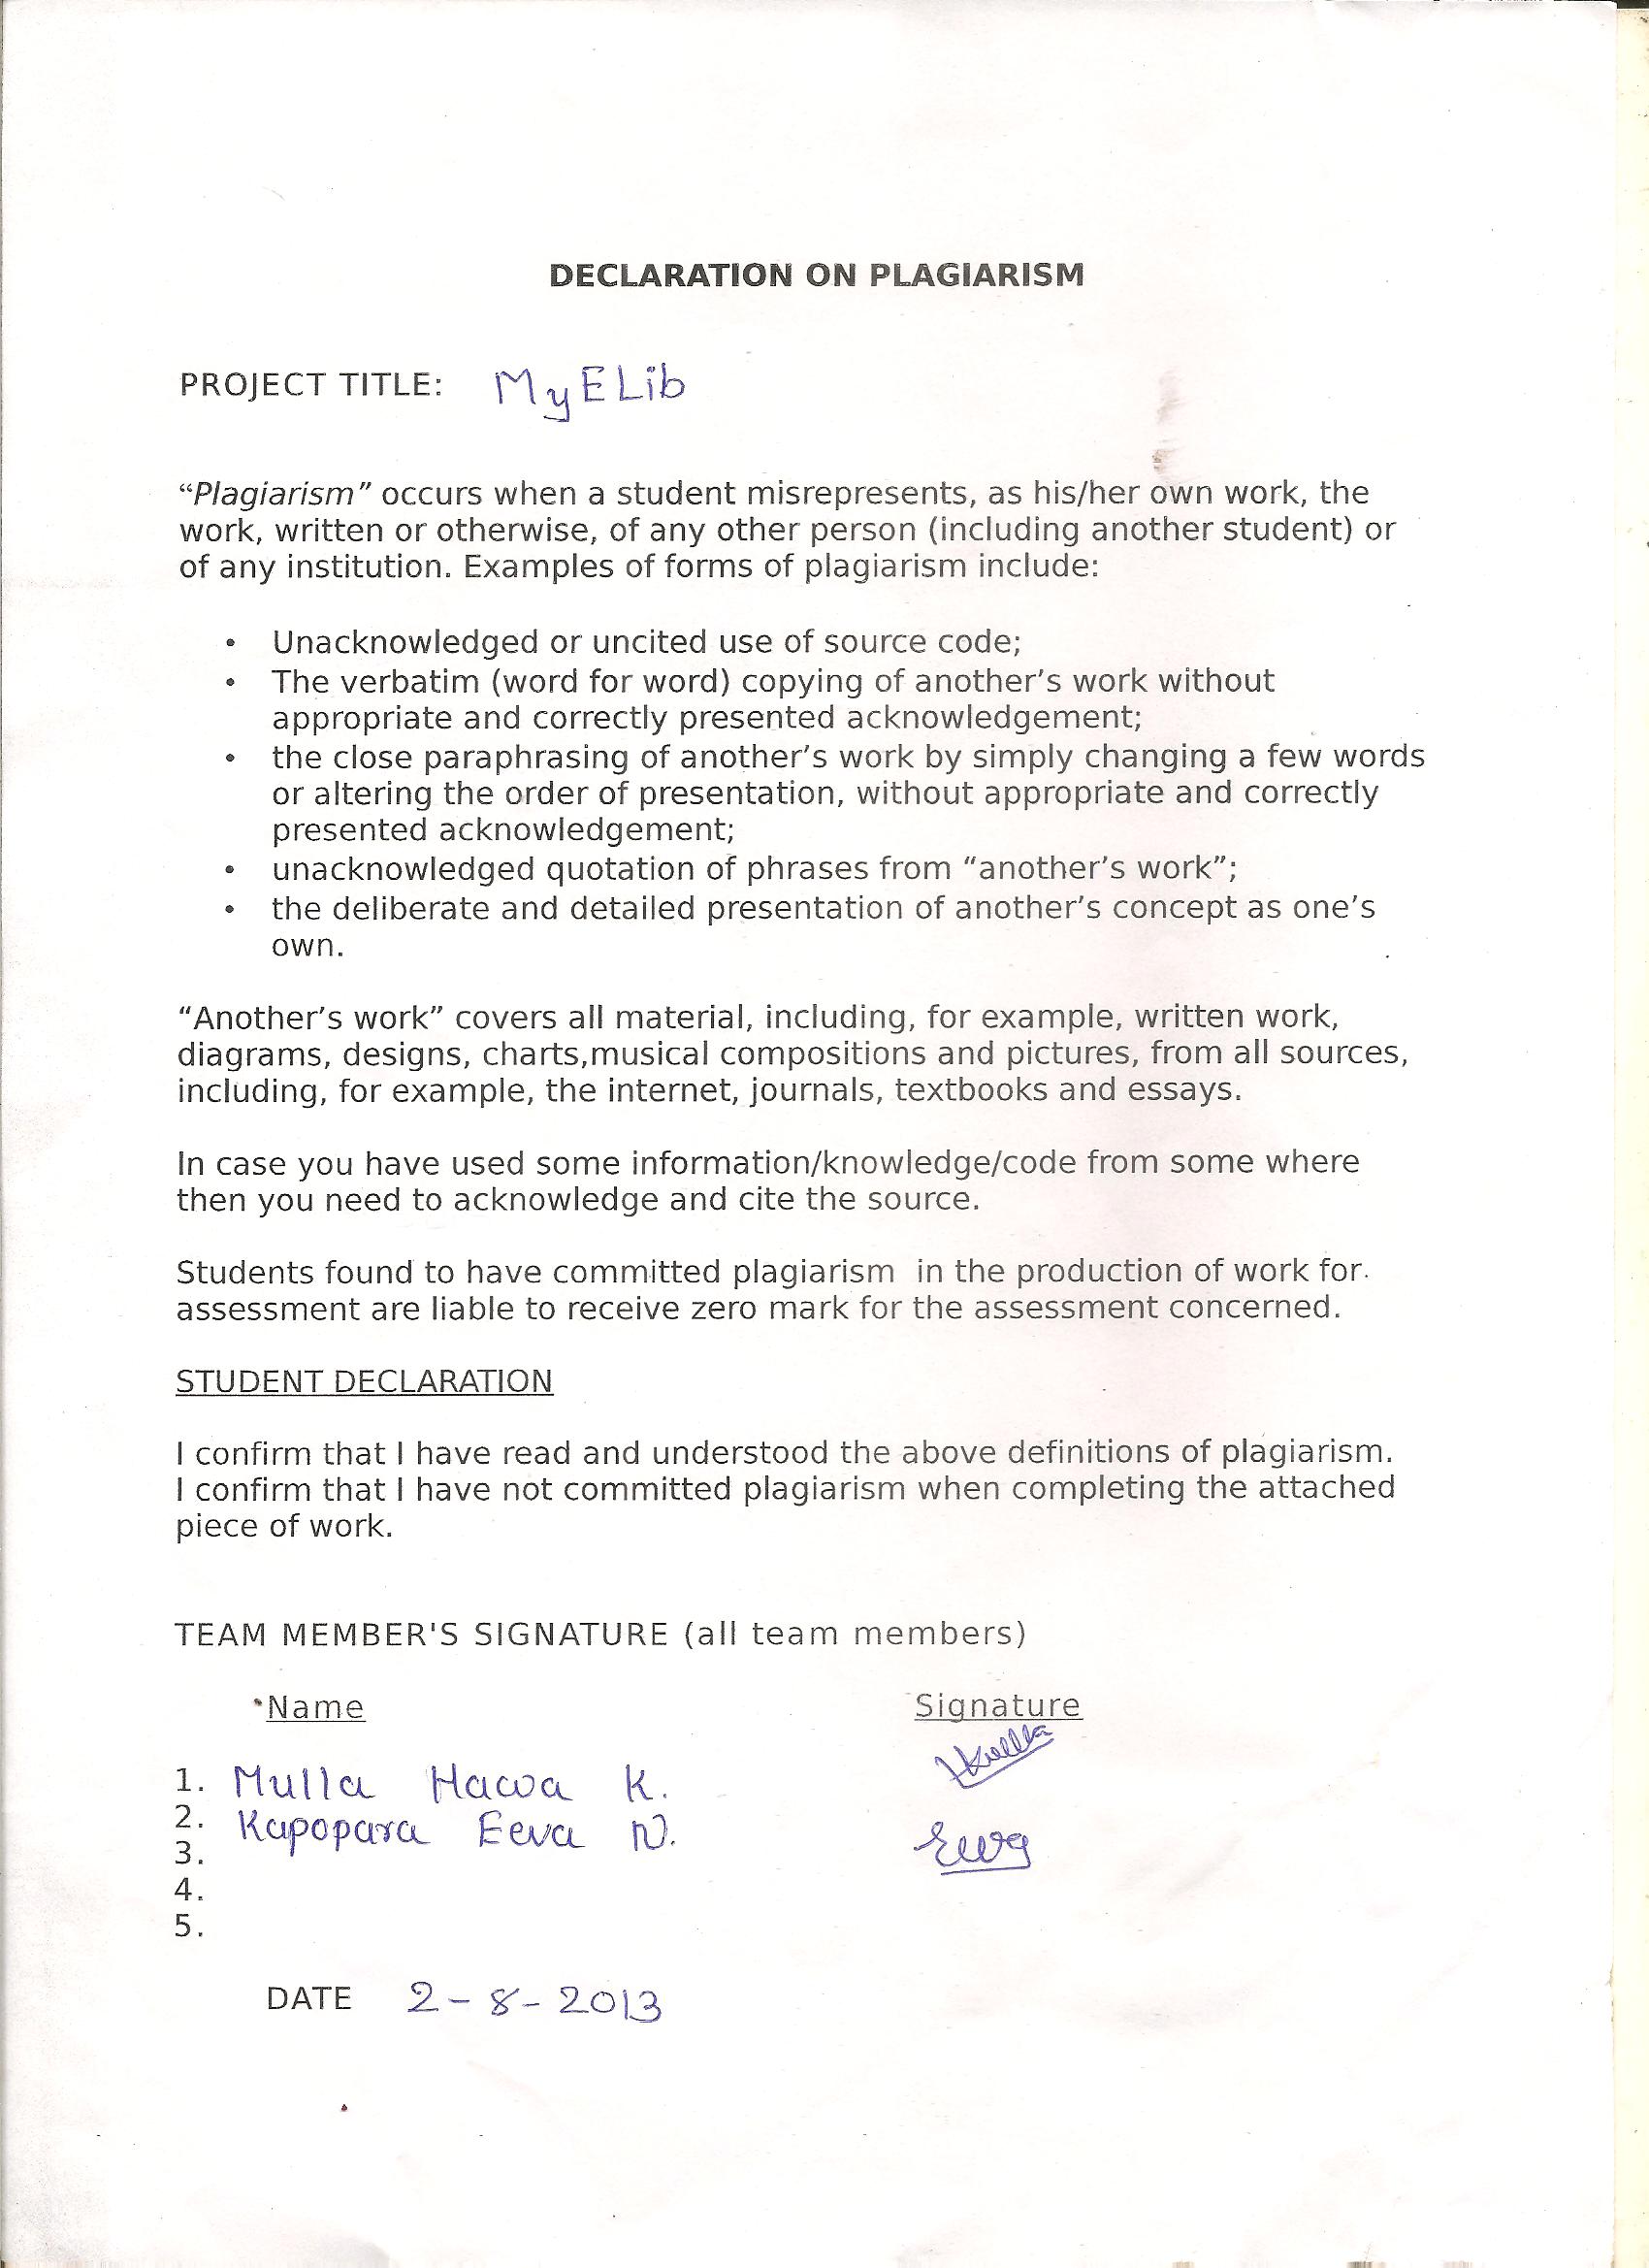 DECLARATION ON PLAGIARISM
PROJECT TITLE: MyELib
“Plagiarism” occurs when a student misrepresents, as his/her own work, the
work, written or otherwise, of any other person (including another student) or
of any institution. Examples of forms of plagiarism include:
• Unacknowledged or uncited use of source code;
• The verbatim (word for word) copying of another’s work without
appropriate and correctly presented acknowledgement;
• the close paraphrasing of another’s work by simply changing a few words
or altering the order of presentation, without appropriate and correctly
presented acknowledgement;
• unacknowledged quotation of phrases from “another’s work”;
• the deliberate and detailed presentation of another’s concept as one’s
own.
“Another’s work” covers all material, including, for example, written work,
diagrams, designs, charts,musical compositions and pictures, from all sources,
including, for example, the internet, journals, textbooks and essays.
In case you have used some information/knowledge/code from some where
then you need to acknowledge and cite the source.
Students found to have committed plagiarism in the production of work for
assessment are liable to receive zero mark for the assessment concerned.
STUDENT DECLARATION
I confirm that I have read and understood the above definitions of plagiarism.
I confirm that I have not committed plagiarism when completing the attached
piece of work.
TEAM MEMBER'S SIGNATURE (all team members)
Name Signature
1. Mulla Hawa K.
2. Kapopara Eeva N.
3.
4.
5.
DATE 2-8-2013